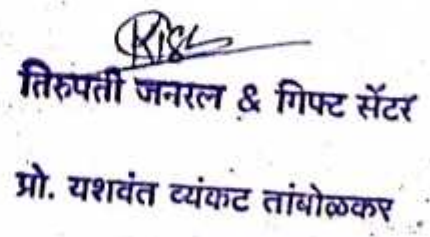 तिरुपती जनरल & गिफ्ट सेंटर
प्रो. यशवंत व्यंकट तांबोळकर